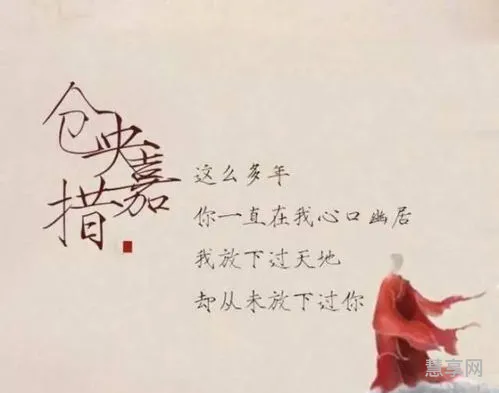 仓央嘉措
这么多年
你一直在我心口幽居
我放下过天地
却从未放下过你
慧享网